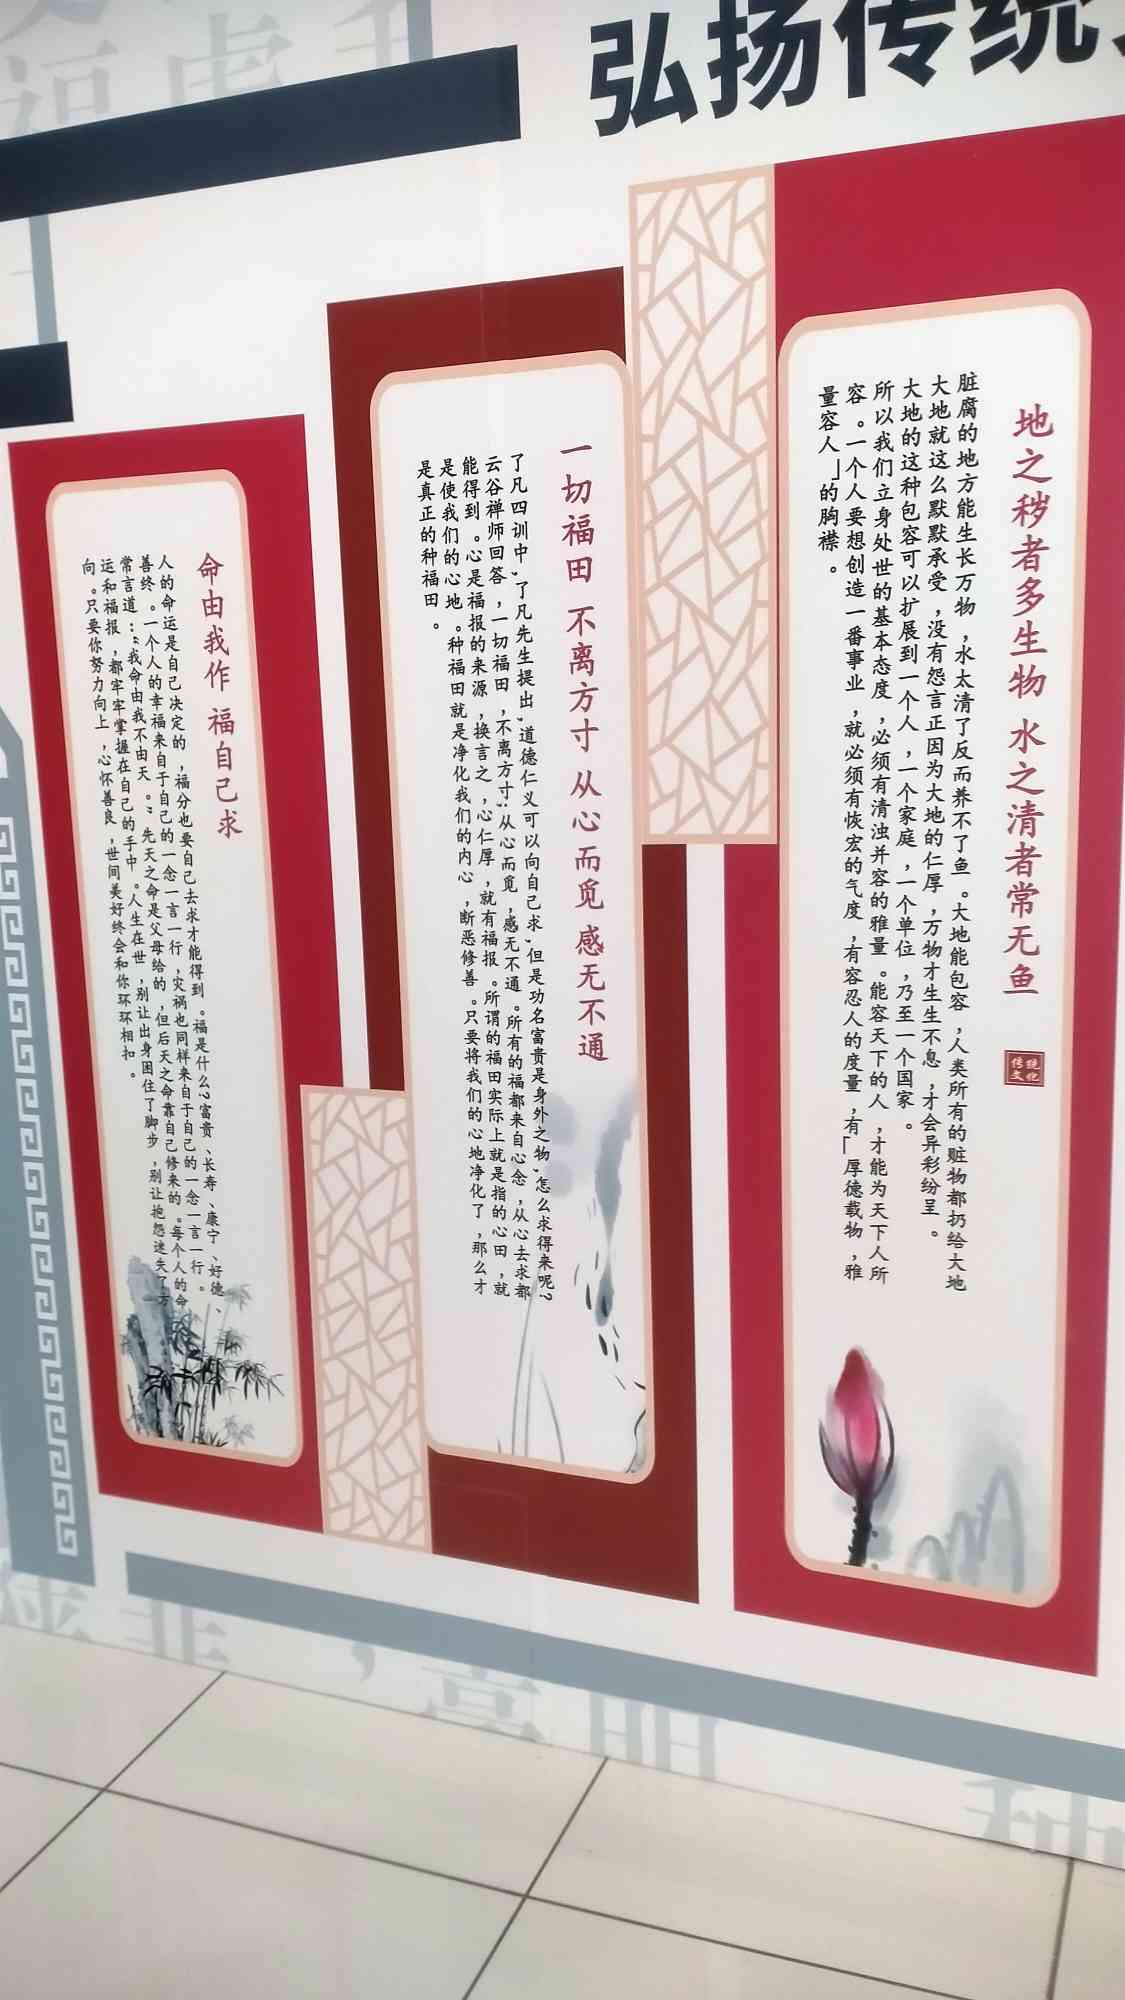 弘扬传统
地之秽者多生物 水之清者常无鱼
传统文化
脏腐的地方能生长万物，水太清了反而养不了鱼。大地能包容，人类所有的脏物都扔给大地
大地就这么默默承受，没有怨言正因为大地的仁厚，万物才生生不息，才会异彩纷呈。
大地的这种包容可以扩展到一个人，一个家庭，一个单位，乃至一个国家。
所以我们立身处世的基本态度，必须有清浊并容的雅量。能容天下的人，才能为天下人所
容。一个人要想创造一番事业，就必须有恢宏的气度，有容忍人的度量，有「厚德载物，雅
量容人」的胸襟。
一切福田 不离方寸 从心而觅 感无不通
了凡四训中，了凡先生提出，道德仁义可以向自己求，但是功名富贵是身外之物，怎么求得来呢？
云谷禅师回答，一切福田，不离方寸；从心而觅，感无不通。所有的福都来自心念，从心去求都
能得到。心是福报的来源，换言之，心仁厚，就有福报。所谓的福田实际上就是指的心田，就
是使我们的心地。种福田就是净化我们的内心，断恶修善。只要将我们的心地净化了，那么才
是真正的种福田。
命由我作 福自己求
人的命运是自己决定的，福分也要自己去求才能得到。福是什么？富贵、长寿、康宁、好德、
善终。一个人的幸福来自于自己的一念一言一行，灾祸也同样来自于自己的一念一言一行。
常言道：“我命由我不由天。”先天之命是父母给的，但后天之命靠自己修来的。每个人的命
运和福报，都牢牢掌握在自己的手中。人生在世，别让出身困住了脚步，别让抱怨迷失了方
向。只要你努力向上，心怀善良，世间美好终会和你环环相扣。